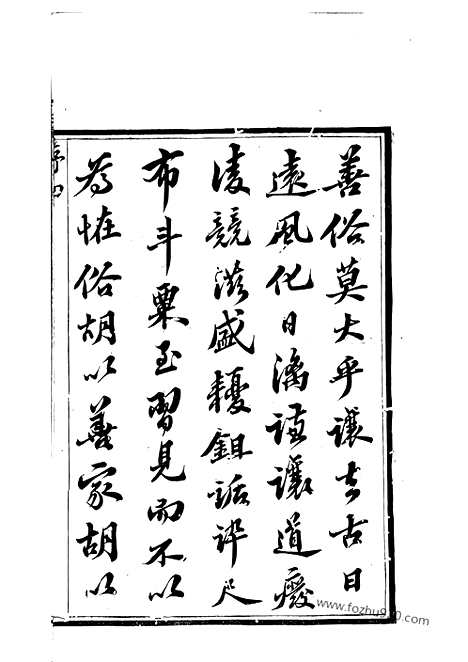 善俗莫大乎讓去古日
遠風化日漓謙讓道廢
凌競滋盛耰鉏詬誶尺
布斗粟至習見而不以
為恠俗胡以善家胡以
序四
www.fozhu920.com